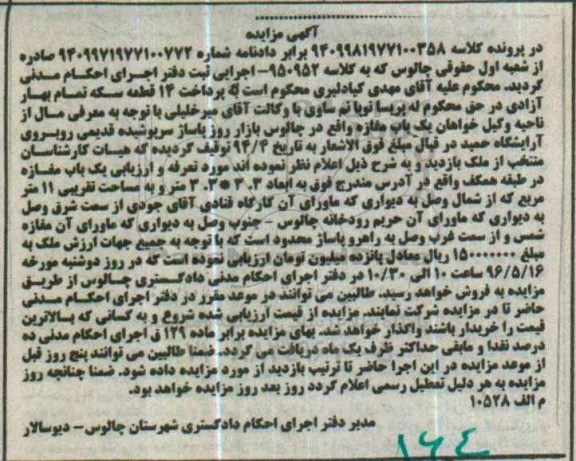 آگهی مزایده
در پرونده کلاسه ۹۴۰۹۹۸۱۹۷۷۱۰۰۳۵۸ برابر دادنامه شماره ۹۴۰۹۹۷۱۹۷۷۱۰۰۷۷۲ صادره
از شعبه اول حقوقی چالوس که به کلاسه ۹۵۰۹۵۲- اجرایی ثبت دفتر اجرای احکام مدنی
گردید. محکوم علیه آقای مهدی کیادلیری محکوم است به پرداخت ۱۴ قطعه سکه تمام بهار
آزادی در حق محکوم له پریسا تویا نم ساوی با وکالت آقای میرخلیلی با توجه به معرفی مال از
ناحیه وکیل خواهان یک باب مغازه واقع در چالوس بازار روز پاساژ سرپوشیده قدیمی روبروی
آرایشگاه حمید در قبال مبلغ فوق الاشعار به تاریخ ۹۴/۴ توقیف گردیده که هیات کارشناسان
منتخب از ملک بازدید و به شرح ذیل اعلام نظر نموده اند مورد تعرفه و ارزیابی یک باب مغازه
در طبقه همکف واقع در آدرس مندرج فوق به ابعاد ۳.۳*۳.۳ متر و به مساحت تقریبی ۱۱ متر
مربع که از شمال وصل به دیواری که ماورای آن کارگاه قنادی آقای جودی از سمت شرق وصل
به دیواری که ماورای آن حریم رودخانه چالوس - جنوب وصل به دیواری که ماورای آن مغازه
شمس و از سمت غرب وصل به راهرو پاساژ محدود است که با توجه به جمیع جهات ارزش ملک به
مبلغ ۱۵۰۰۰۰۰۰۰ ریال معادل پانزده میلیون تومان ارزیابی نموده است که در روز دوشنبه مورخه
۹۶/۵/۱۶ ساعت ۱۰ الی ۱۰/۳۰ در دفتر اجرای احکام مدنی دادگستری چالوس از طریق
مزایده به فروش خواهد رسید. طالبین می توانند در موعد مقرر در دفتر اجرای احکام مدنی
حاضر تا در مزایده شرکت نمایند. مزایده از قیمت ارزیابی شده شروع و به کسانی که بالاترین
قیمت را خریدار باشند واگذار خواهد شد. بهای مزایده برابر ماده ۱۲۹ ق اجرای احکام مدنی ده
درصد نقدا و مابقی حداکثر ظرف یک ماه دریافت می گردد. ضمنا طالبین می توانند پنج روز قبل
از موعد مزایده در این اجرا حاضر تا ترتیب بازدید از مورد مزایده داده شود. ضمنا چنانچه روز
مزایده به هر دلیل تعطیل رسمی اعلام گردد روز بعد روز مزایده خواهد بود.
م الف ۱۰۵۲۸
مدیر دفتر اجرای احکام دادگستری شهرستان چالوس- دیوسالار
۱۶٤